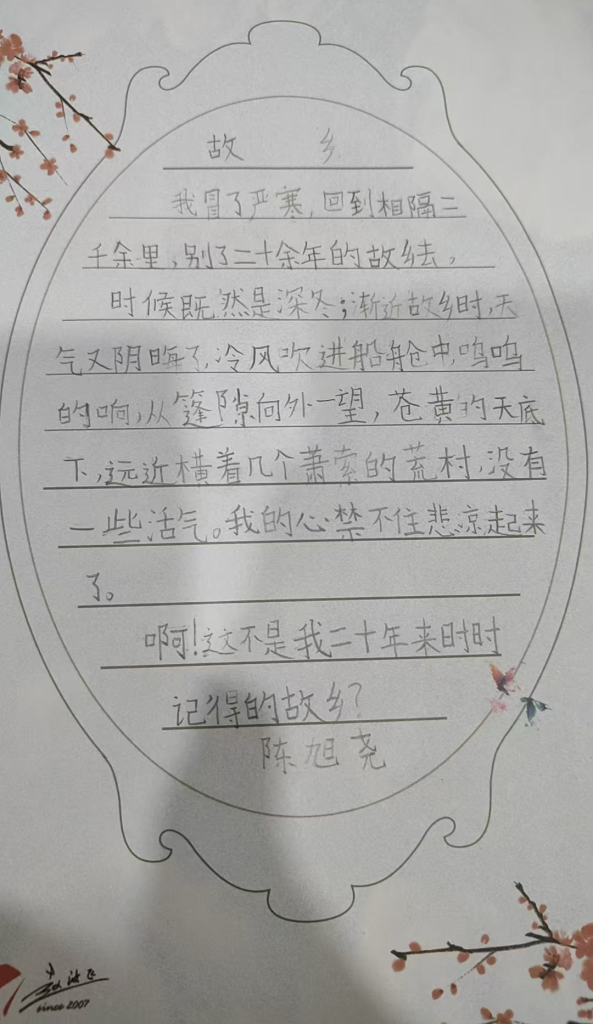 故乡
我冒了严寒，回到相隔三
千余里，别了二十余年的故乡去。
时候既然是深冬；渐近故乡时，天
气又阴晦了，冷风吹进船舱中，呜呜
的响，从篷隙向外一望，苍黄的天底
下，远近横着几个萧索的荒村，没有
一些活气。我的心禁不住悲凉起来
了。
啊！这不是我二十年来时时
记得的故乡？
陈旭尧
since 2007